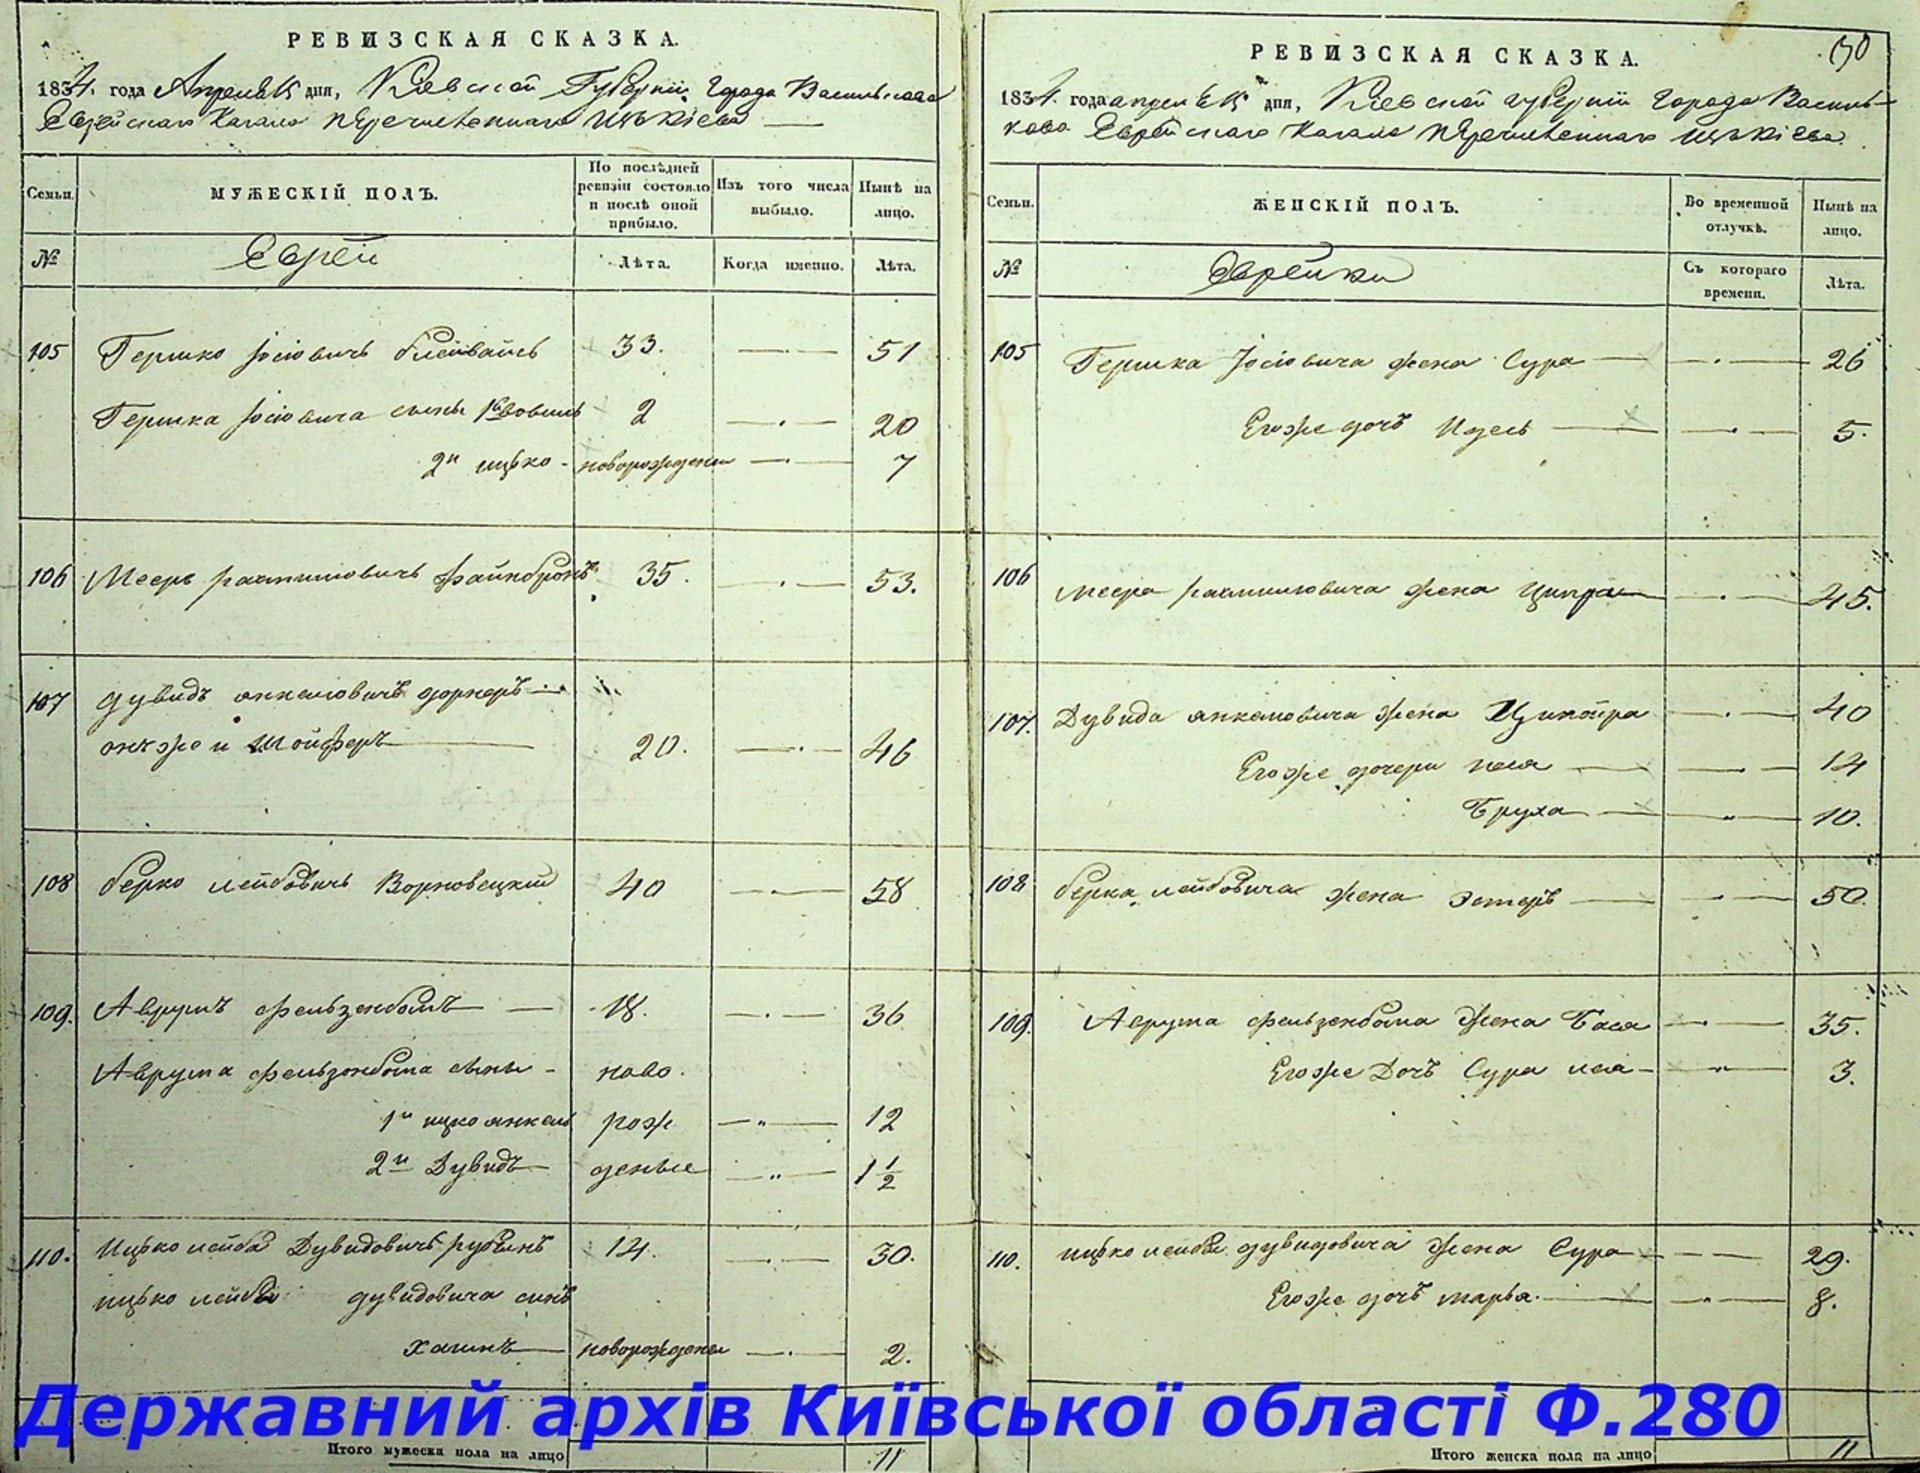 РЕВИЗСКАЯ СКАЗКА.
1834. года Апреля 15 дня, Киевской Губернии, Города Василькова
Еврейскаго Кагала перечисленнаго изъ Кіева
Семьи. МУЖЕСКІЙ ПОЛЪ. По послѣдней ревизіи состояло и послѣ оной прибыло. Изъ того числа выбыло. Нынѣ на лицо.
№ Еврей Лѣта. Когда именно. Лѣта.
105 Гершко Іосіовичъ 33. 51
Гершка Іосіовича сыны 1й 2 20
2й ицько новорожден 7
106 Мееръ рахмиловичъ файнбронъ 35. 53.
107 дувидъ янкелювичъ дорнеръ
онже и Шойферъ 20. 46
108 берко лейбовичъ 40 58
109. Аврумъ фельзенбомъ 18. 36
Аврума фельзенбома сыны ново
1й ицко янкель рож 12
2й Дувидъ денные 1 1/2
110. Ицько лейба Дувидовичъ рубинъ 14. 30.
ицько лейби дувидовича синъ
хаимъ новорожден 2.
Итого мужеска пола на лицо 11
РЕВИЗСКАЯ СКАЗКА.
1834. года апреля 15 дня, Киевской губерніи Города Василь-
кова Еврейскаго Кагала перечисленнаго изъ Кіева.
Семьи. ЖЕНСКІЙ ПОЛЪ. Во временной отлучкѣ. Нынѣ на лицо.
№ Еврейки Съ котораго времени. Лѣта.
105 Гершка Іосіовича жена Сура 26
Егоже дочъ Идесь 5.
106 меера рахмиловича жена Ципра 45.
107. Дувида янкеловича жена Ципойра 40
Егоже дочери 14
Бруха 10.
108 берка лейбовича жена Эстеръ 50.
109. Аврума фельзенбома жена Бася 35.
Егоже Дочъ Сура лея 3.
110. ицько лейби дувидовича жена Сура 29.
Егоже дочъ марья 8.
Итого женска пола на лицо 11
Державний архів Київської області Ф.280